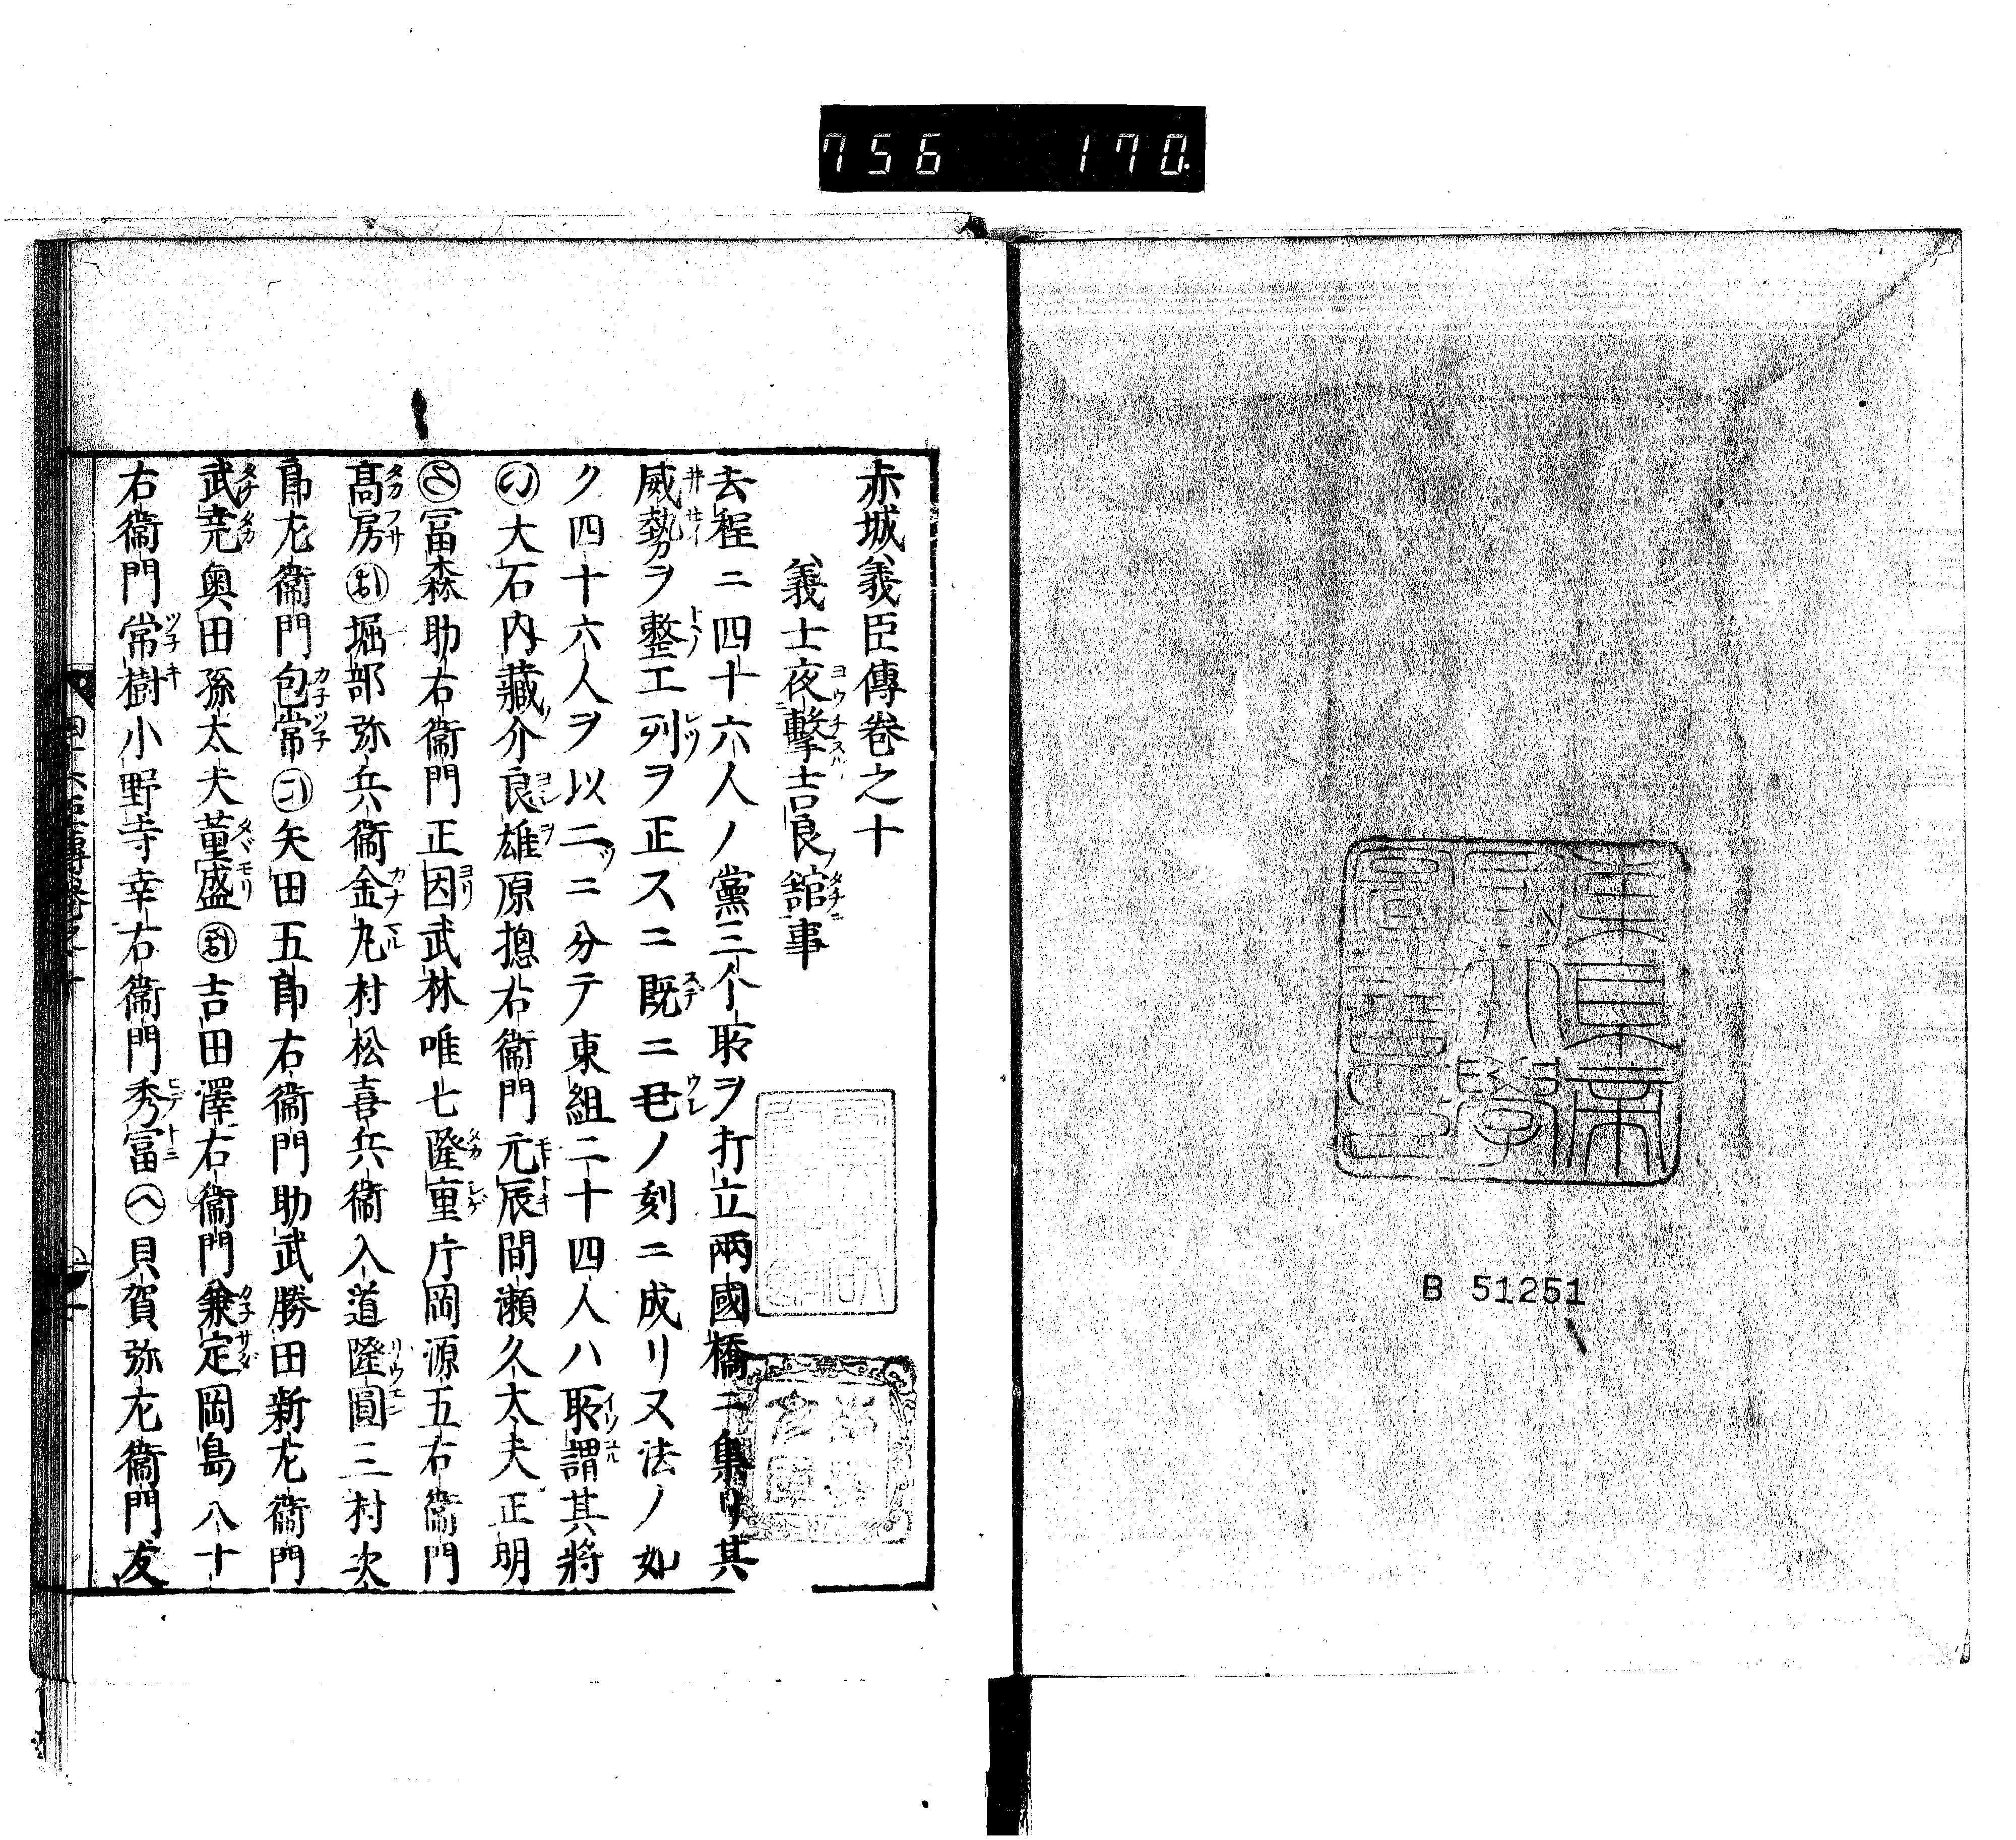 756 170
B 51251
赤城義臣傳卷之十
義士夜擊吉良舘事
去程ニ四十六人ノ黨三个所ヲ打立兩國橋ニ集リ其
威勢ヲ整エ列ヲ正スニ既ニ丑ノ刻ニ成リヌ法ノ如
ク四十六人ヲ以二ツニ分テ東組二十四人ハ所謂其將
大石内藏介良雄原揔右衞門元辰間瀬久太夫正明
冨森助右衞門正因武林唯七隆重片岡源五右衞門
髙房堀部弥兵衞金丸村松喜兵衞入道隆圓三村次
郎左衞門包常矢田五郎右衞門助武勝田新左衞門
武尭奥田孫太夫重盛吉田澤右衞門兼定岡島八十
右衞門常樹小野寺幸右衞門秀冨貝賀弥左衞門友